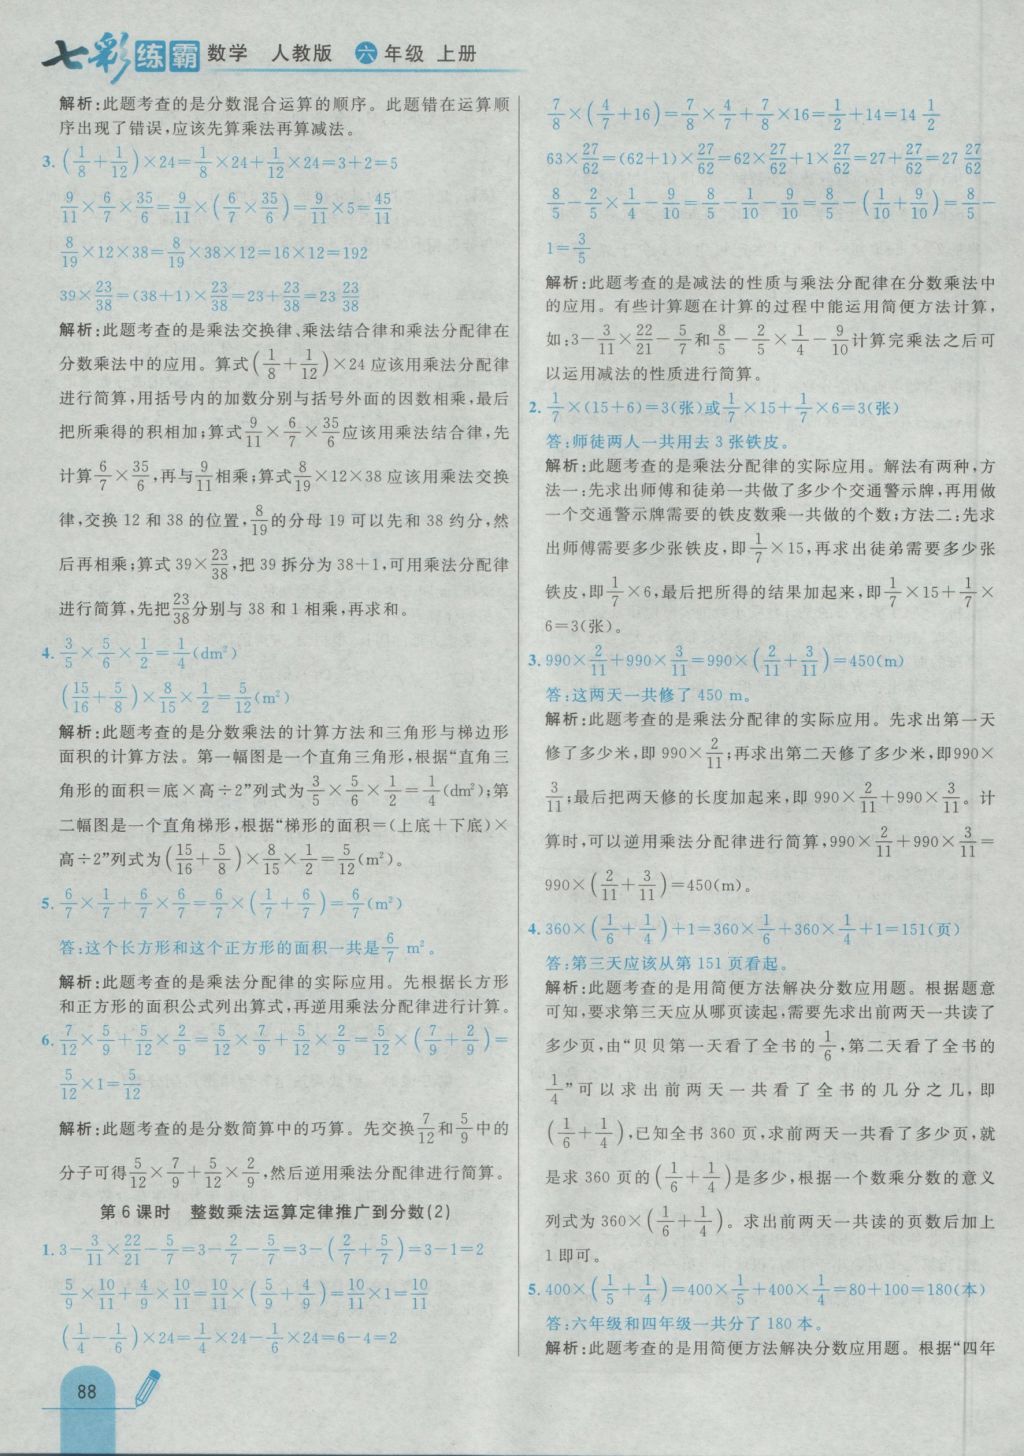 七彩练霸 数学 人教版 六年级 上册
解析:此题考查的是分数混合运算的顺序。此题错在运算顺
序出现了错误,应该先算乘法再算减法。
3. (1/8+1/12)×24=1/8×24+1/12×24=3+2=5
9/11×6/7×35/6=9/11×(6/7×35/6)=9/11×5=45/11
8/19×12×38=8/19×38×12=16×12=192
39×23/38=(38+1)×23/38=23+23/38=23 23/38
解析:此题考查的是乘法交换律、乘法结合律和乘法分配律在
分数乘法中的应用。算式(1/8+1/12)×24应该用乘法分配律
进行简算,用括号内的加数分别与括号外面的因数相乘,最后
把所乘得的积相加;算式9/11×6/7×35/6应该用乘法结合律,先
计算6/7×35/6,再与9/11相乘;算式8/19×12×38应该用乘法交换
律,交换12和38的位置,8/19的分母19可以先和38约分,然
后再相乘;算式39×23/38,把39拆分为38+1,可用乘法分配律
进行简算,先把23/38分别与38和1相乘,再求和。
4. 3/5×5/6×1/2=1/4(dm²)
(15/16+5/8)×8/15×1/2=5/12(m²)
解析:此题考查的是分数乘法的计算方法和三角形与梯边形
面积的计算方法。第一幅图是一个直角三角形,根据“直角三
角形的面积=底×高÷2”列式为3/5×5/6×1/2=1/4(dm²);第
二幅图是一个直角梯形,根据“梯形的面积=(上底+下底)×
高÷2”列式为(15/16+5/8)×8/15×1/2=5/12(m²)。
5. 6/7×1/7+6/7×6/7=6/7×(1/7+6/7)=6/7(m²)
答:这个长方形和这个正方形的面积一共是6/7 m²。
解析:此题考查的是乘法分配律的实际应用。先根据长方形
和正方形的面积公式列出算式,再逆用乘法分配律进行计算。
6. 7/12×5/9+5/12×2/9=5/12×7/9+5/12×2/9=5/12×(7/9+2/9)=
5/12×1=5/12
解析:此题考查的是分数简算中的巧算。先交换7/12和5/9中的
分子可得5/12×7/9+5/12×2/9,然后逆用乘法分配律进行简算。
第6课时 整数乘法运算定律推广到分数(2)
1. 3-3/11×22/21-5/7=3-2/7-5/7=3-(2/7+5/7)=3-1=2
5/9×10/11+4/9×10/11=10/11×(5/9+4/9)=10/11
(1/4-1/6)×24=1/4×24-1/6×24=6-4=2
88
7/8×(4/7+16)=7/8×4/7+7/8×16=1/2+14=14 1/2
63×27/62=(62+1)×27/62=62×27/62+1×27/62=27+27/62=27 27/62
8/5-2/5×1/4-9/10=8/5-1/10-9/10=8/5-(1/10+9/10)=8/5-
1=3/5
解析:此题考查的是减法的性质与乘法分配律在分数乘法中
的应用。有些计算题在计算的过程中能运用简便方法计算,
如:3-3/11×22/21-5/7和8/5-2/5×1/4-9/10计算完乘法之后可
以运用减法的性质进行简算。
2. 1/7×(15+6)=3(张)或1/7×15+1/7×6=3(张)
答:师徒两人一共用去3张铁皮。
解析:此题考查的是乘法分配律的实际应用。解法有两种,方
法一:先求出师傅和徒弟一共做了多少个交通警示牌,再用做
一个交通警示牌需要的铁皮数乘一共做的个数;方法二:先求
出师傅需要多少张铁皮,即1/7×15,再求出徒弟需要多少张
铁皮,即1/7×6,最后把所得的结果加起来,即1/7×15+1/7×
6=3(张)。
3. 990×2/11+990×3/11=990×(2/11+3/11)=450(m)
答:这两天一共修了450 m。
解析:此题考查的是乘法分配律的实际应用。先求出第一天
修了多少米,即990×2/11;再求出第二天修了多少米,即990×
3/11;最后把两天修的长度加起来,即990×2/11+990×3/11。计
算时,可以逆用乘法分配律进行简算,990×2/11+990×3/11=
990×(2/11+3/11)=450(m)。
4. 360×(1/6+1/4)+1=360×1/6+360×1/4+1=151(页)
答:第三天应该从第151页看起。
解析:此题考查的是用简便方法解决分数应用题。根据题意
可知,要求第三天应从哪页读起,需要先求出前两天一共读了
多少页,由“贝贝第一天看了全书的1/6,第二天看了全书的
1/4”可以求出前两天一共看了全书的几分之几,即
(1/6+1/4),已知全书360页,求前两天一共看了多少页,就
是求360页的(1/6+1/4)是多少,根据一个数乘分数的意义
列式为360×(1/6+1/4)。求出前两天一共读的页数后加上
1即可。
5. 400×(1/5+1/4)=400×1/5+400×1/4=80+100=180(本)
答:六年级和四年级一共分了180本。
解析:此题考查的是用简便方法解决分数应用题。根据“四年